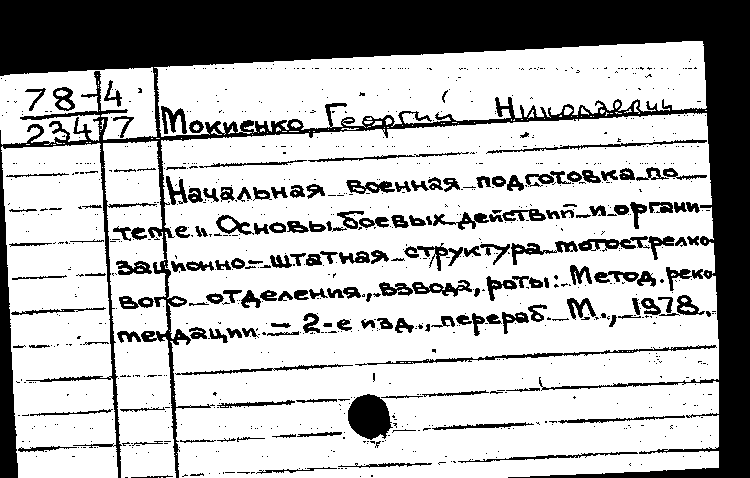 78-4
23477
Мокиенко, Георгий Николаевич
Начальная военная подготовка по
теме „ Основы боевых действий и органи-
зационно-штатная структура мотострелко-
вого отделения, взвода, роты: Метод. реко-
мендации – 2-е изд., перераб. М., 1978.